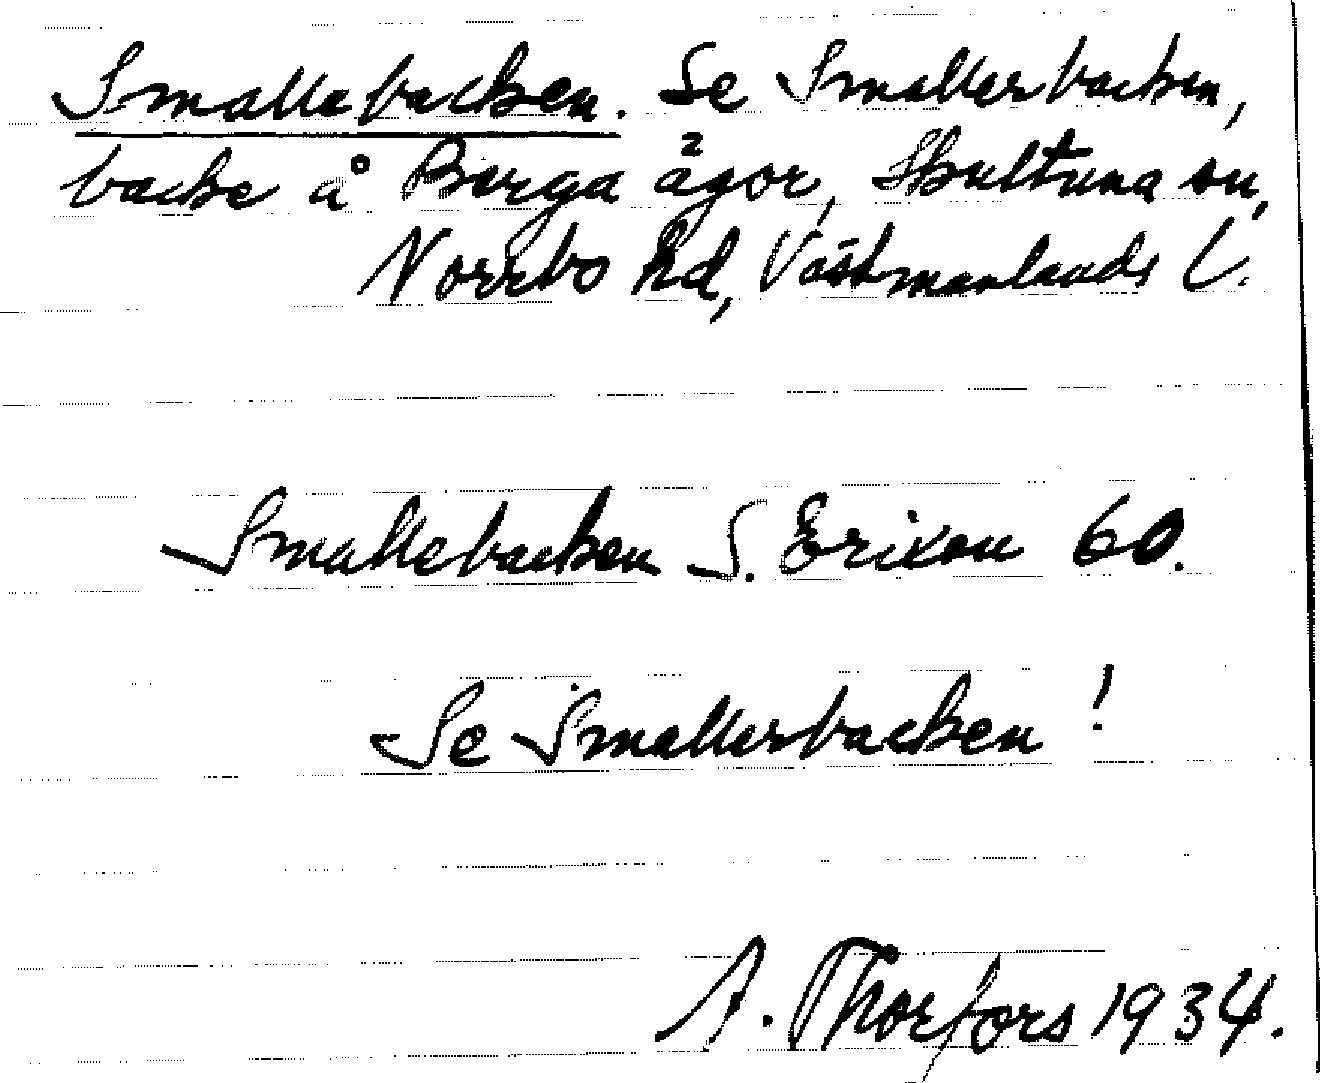 Smallebacken. Se Smallerbacken,
backe å Berga ägor, Skultuna sn,
Norrbo hd, Västmanlands l.
Smallebacken S. Erixon 60.
Se Smallerbacken!
A. Thorfors 1934.